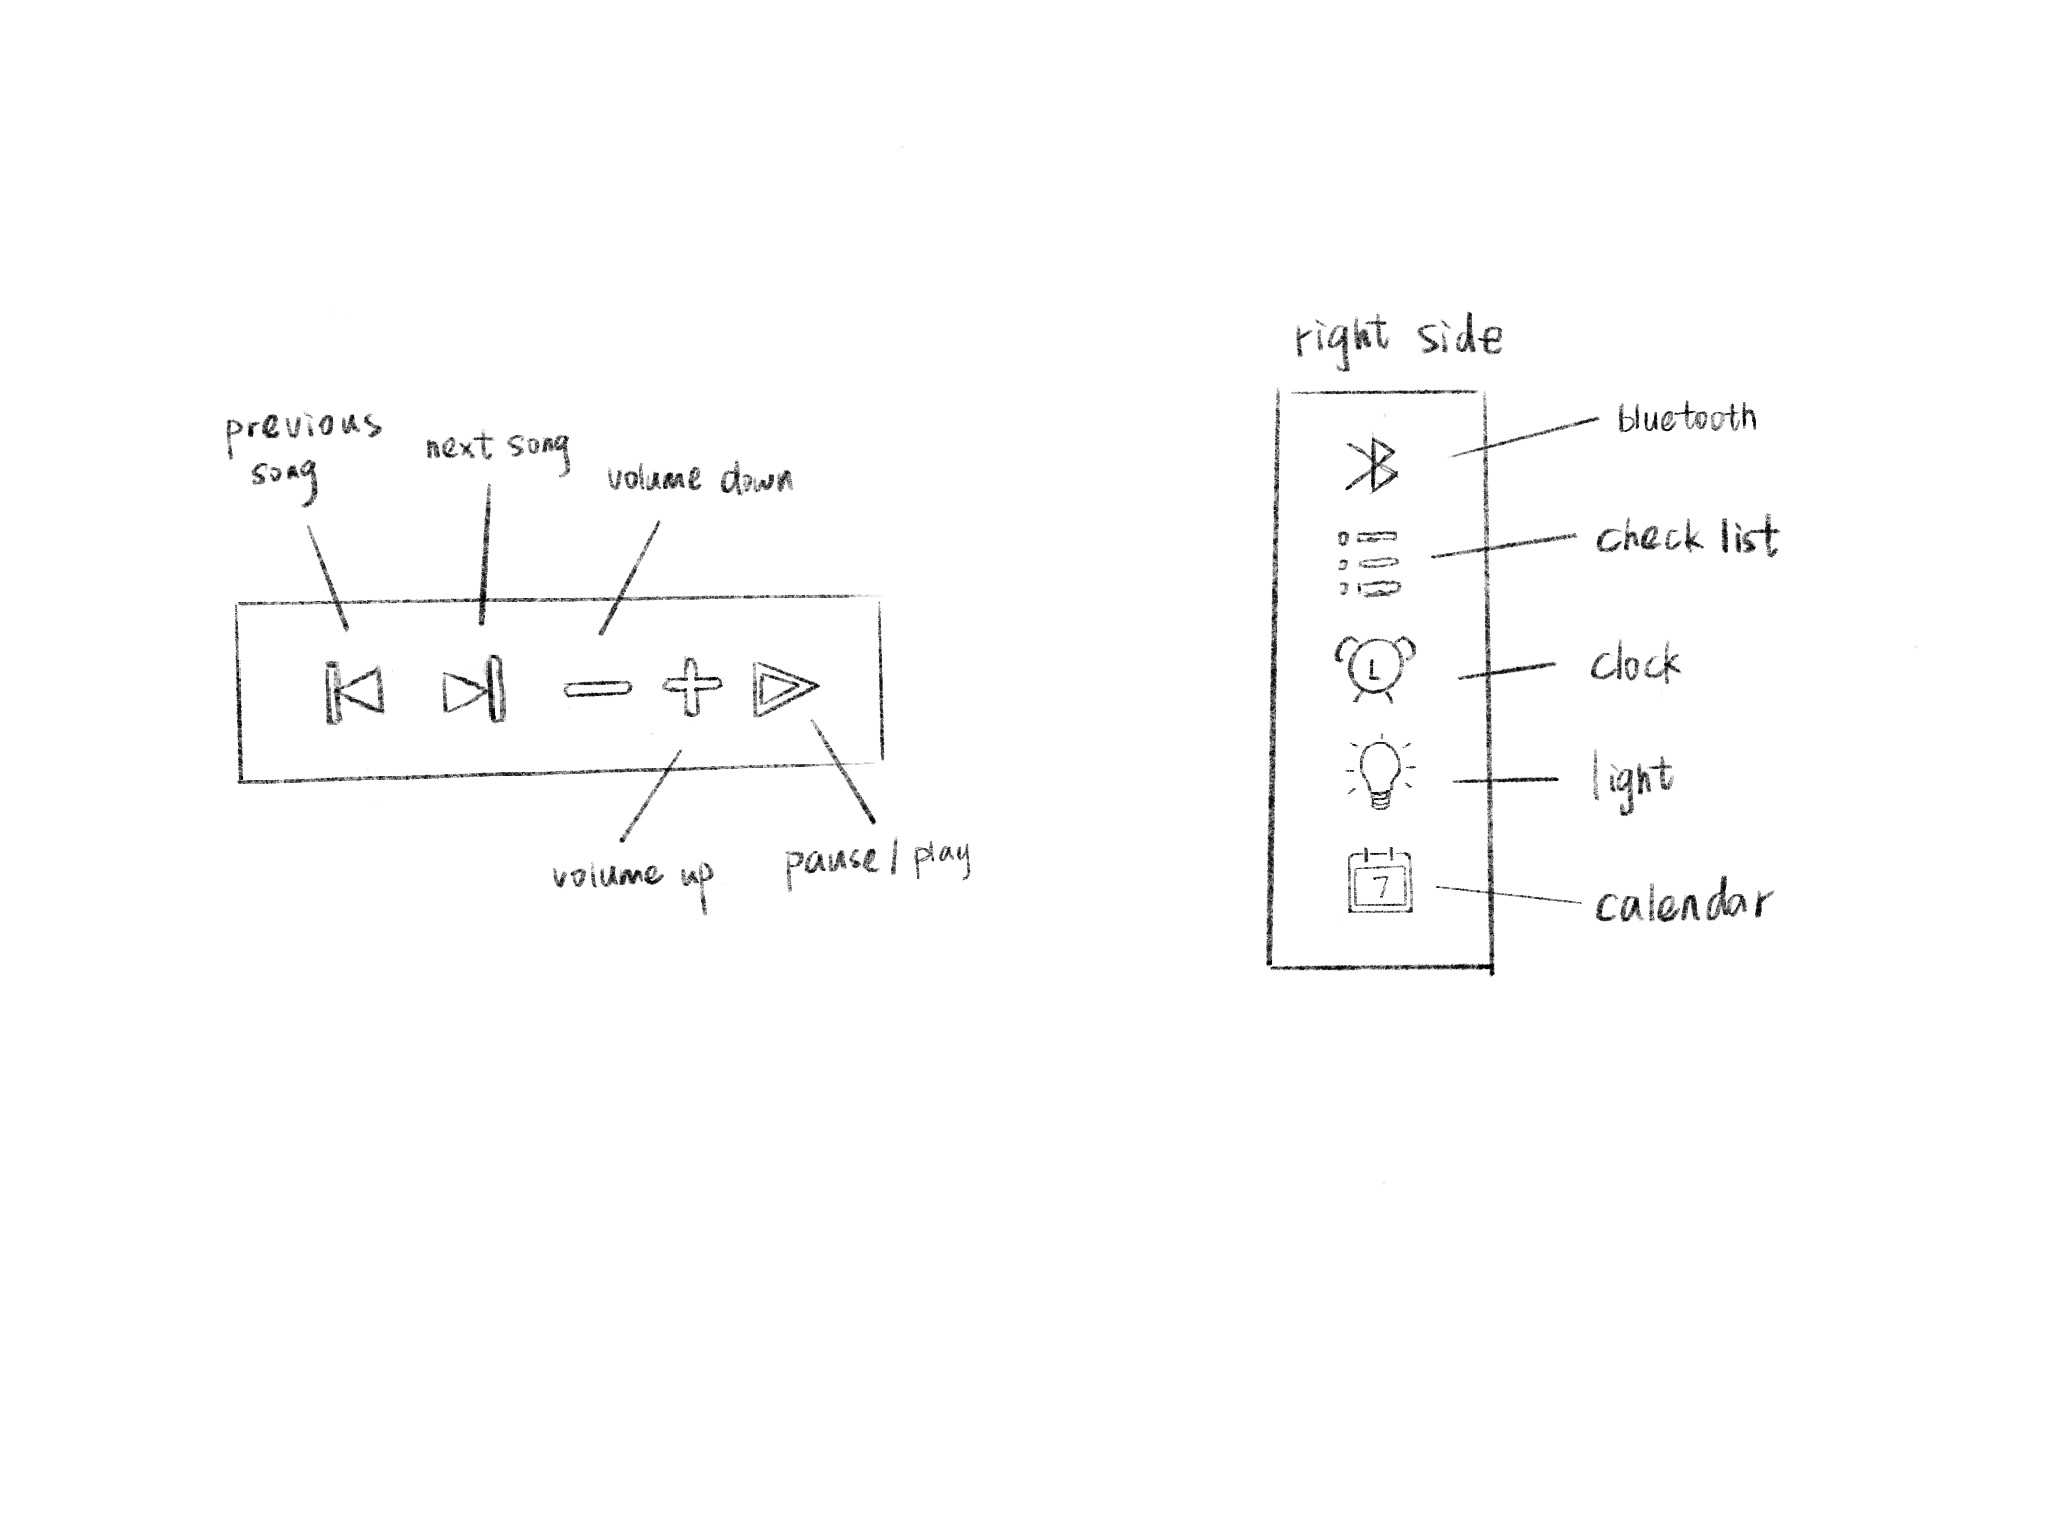 previous
song
next song
volume down
volume up
pause / play
right side
bluetooth
check list
clock
light
7
calendar